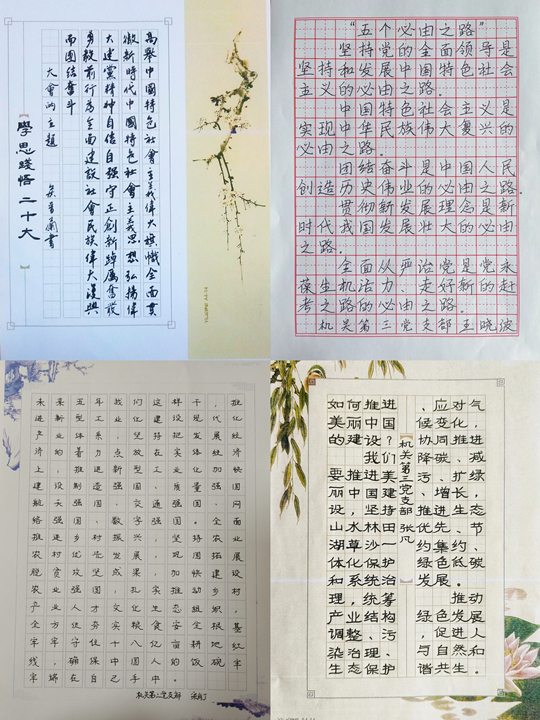 高舉中國特色社會主義偉大旗幟全面貫
徹新時代中國特色社會主義思想弘揚偉
大建黨精神自信自强守正創新踔厲奮發
勇毅前行為全面建設社會民族偉大復興
而團結奮斗
大會的主題
學思踐悟二十大
“五个必由之路”
坚持党的全面领导是
坚持和发展中国特色社会
主义的必由之路.
中国特色社会主义是
实现中华民族伟大复兴的
必由之路.
团结奋斗是中国人民
创造历史伟业的必由之路.
贯彻新发展理念是新
时代我国发展壮大的必由
之路.
全面从严治党是党永
葆生机活力、走好新的赶
考之路的必由之路.
机关第三党支部 王晓波
未来五年我们这样干,推
进新型工业化建设现代化
产业体系,坚持把发展经
济的着力点放在实体经济
上,推进新型工业化,加快
建设制造强国、质量强国
航天强国、交通强国、网
络强国、数字中国。全面
推进乡村振兴,坚持农业
农村优先发展,巩固拓展
脱贫攻坚成果,加快建设
农业强国,扎实推动乡村
机关第三党支部
如何推进
美丽中国
的建设?
我们
要推进美
丽中国建
设,坚持
山水林田
湖草沙
体化保护
和系统治
理,统筹
产业结构
调整、污
染治理、
生态保护
机关第三党支部 张凡
、应对气
候变化,
协同推进
降碳、减
污、扩绿
、增长,
推进生态
优先、节
约集约、
绿色低碳
发展。
推动
绿色发展
,促进人
与自然和
谐共生。